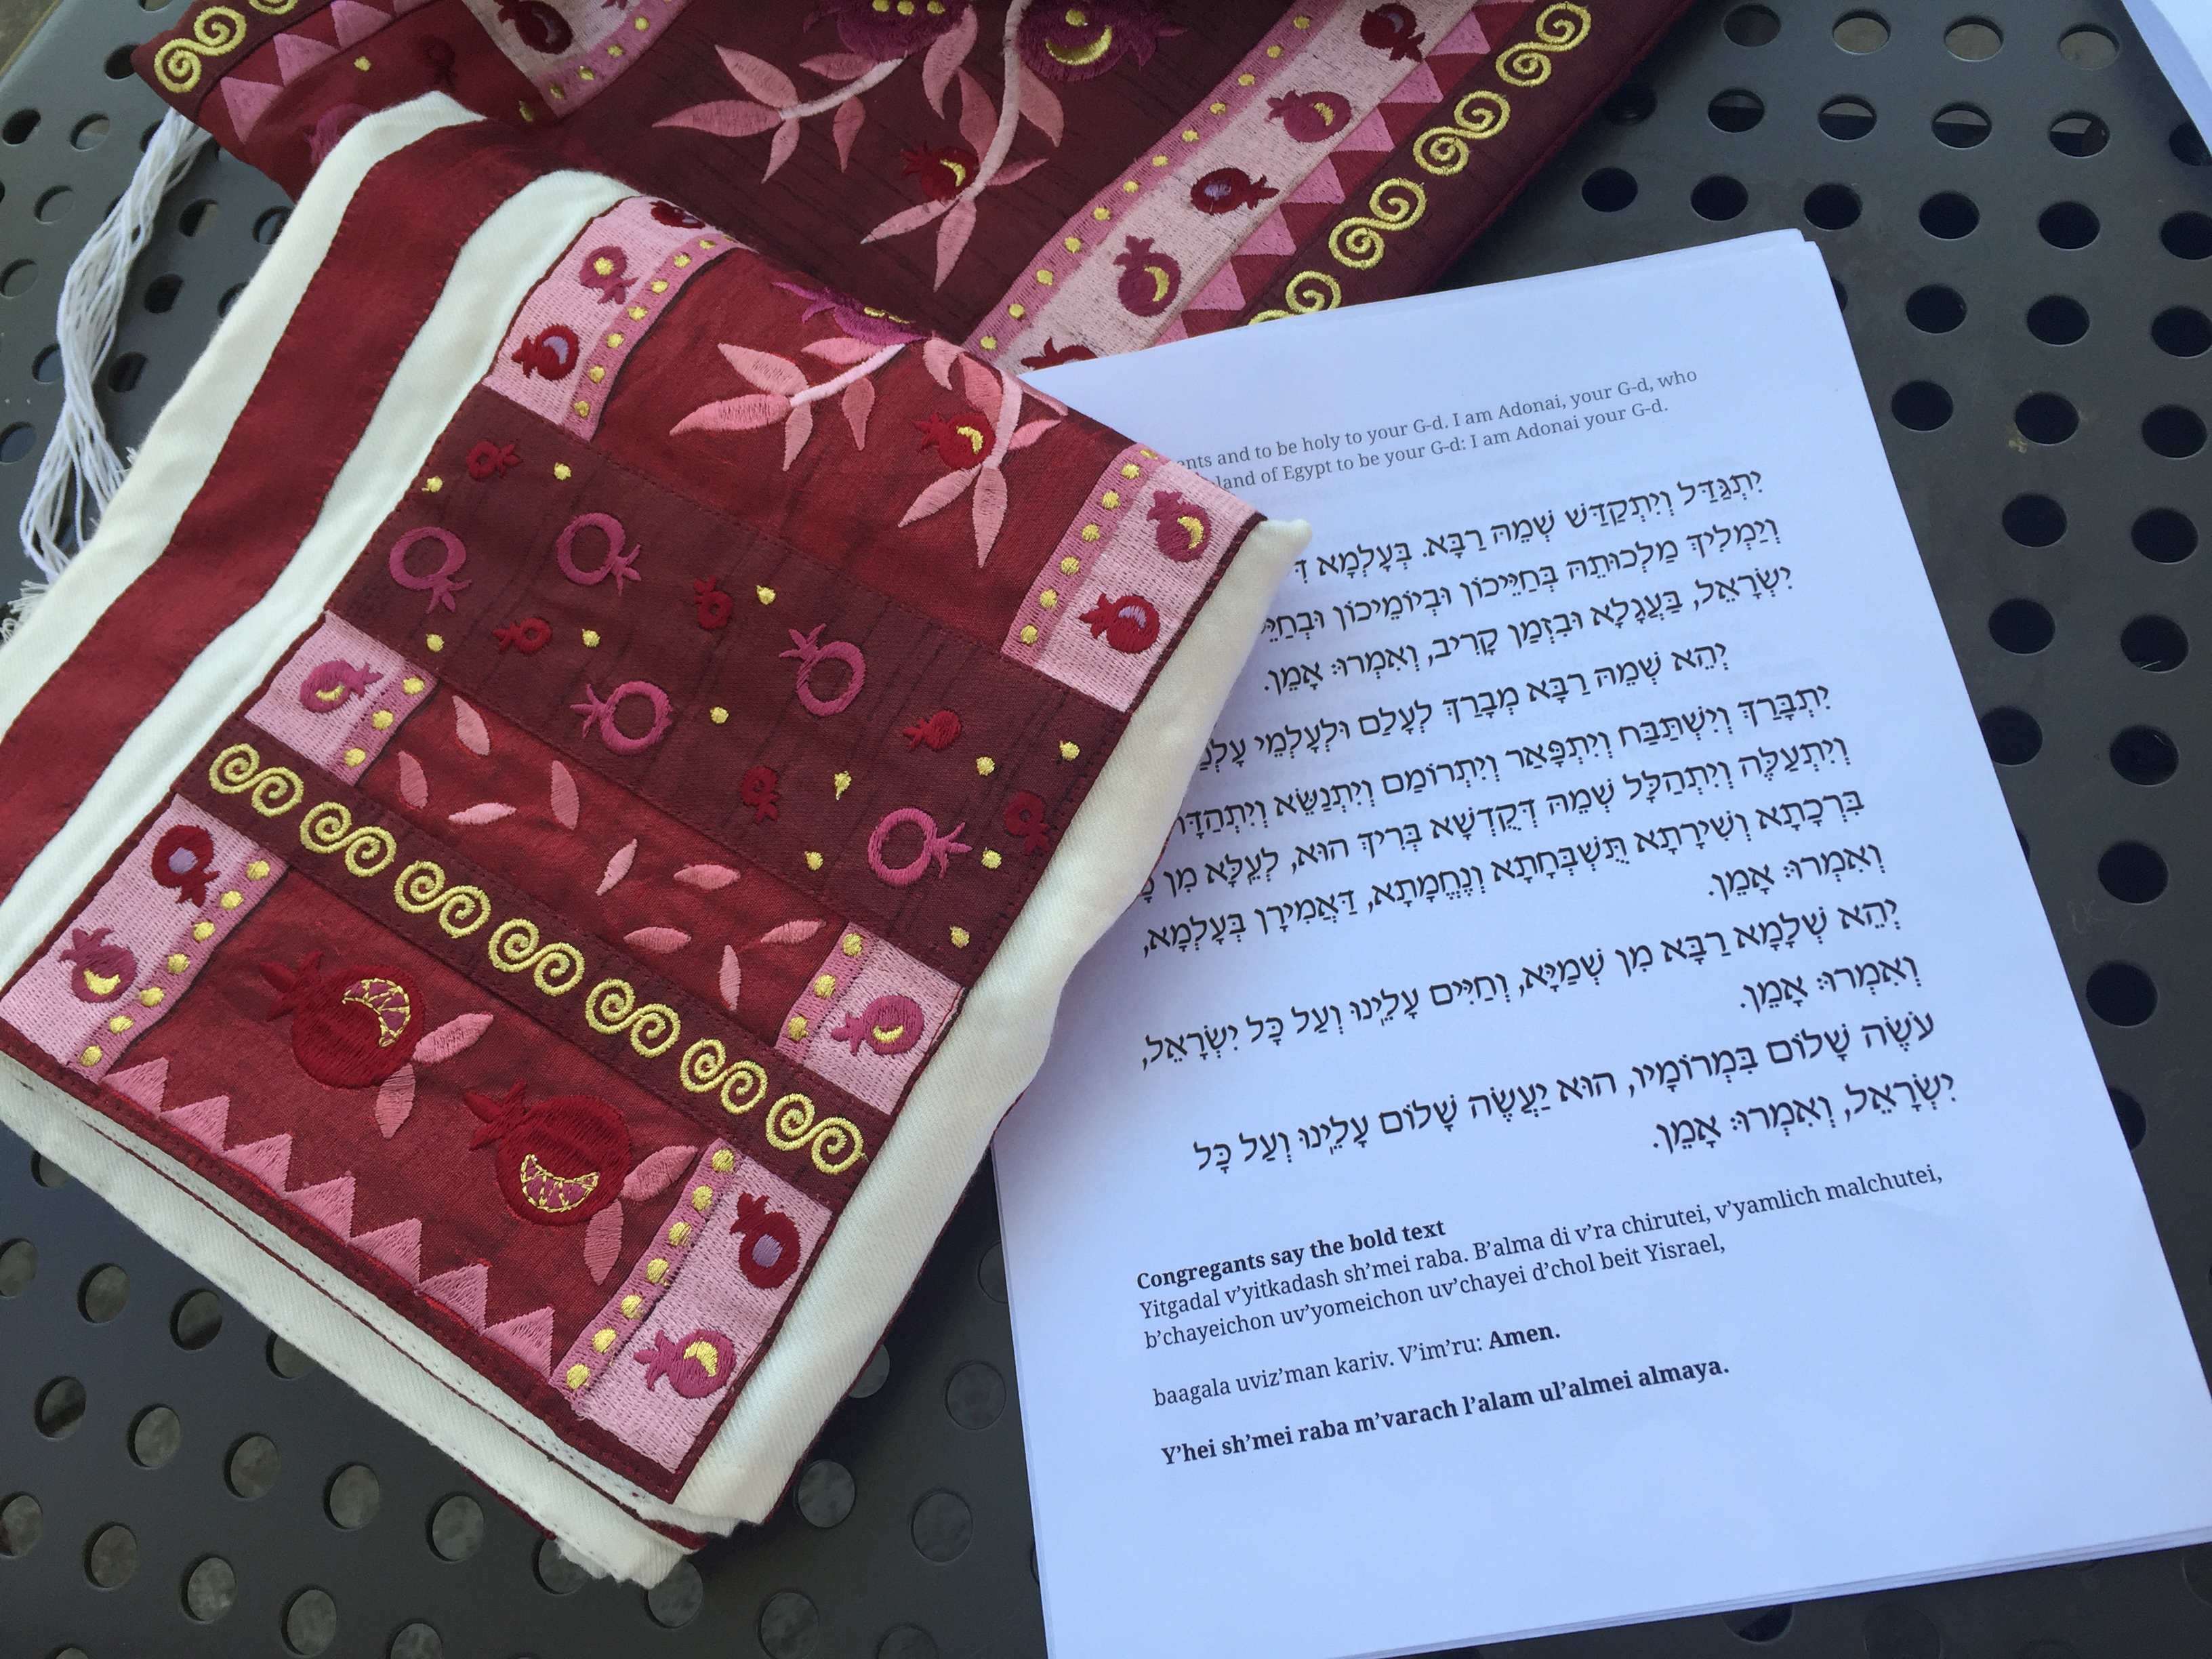 and to be holy to your G-d. I am Adonai, your G-d, who
land of Egypt to be your G-d: I am Adonai your G-d.
יִתְגַּדַּל וְיִתְקַדַּשׁ שְׁמֵהּ רַבָּא. בְּעָלְמָא
וְיַמְלִיךְ מַלְכוּתֵהּ בְּחַיֵּיכוֹן וּבְיוֹמֵיכוֹן
יִשְׂרָאֵל, בַּעֲגָלָא וּבִזְמַן קָרִיב, וְאִמְרוּ: אָמֵן.
יְהֵא שְׁמֵהּ רַבָּא מְבָרַךְ לְעָלַם וּלְעָלְמֵי
יִתְבָּרַךְ וְיִשְׁתַּבַּח וְיִתְפָּאַר וְיִתְרוֹמַם וְיִתְנַשֵּׂא וְיִתְהַדָּר
וְיִתְעַלֶּה וְיִתְהַלָּל שְׁמֵהּ דְּקֻדְשָׁא בְּרִיךְ הוּא, לְעֵלָּא מִן
בִּרְכָתָא וְשִׁירָתָא תֻּשְׁבְּחָתָא וְנֶחֱמָתָא, דַּאֲמִירָן בְּעָלְמָא,
וְאִמְרוּ: אָמֵן.
יְהֵא שְׁלָמָא רַבָּא מִן שְׁמַיָּא, וְחַיִּים עָלֵינוּ וְעַל כָּל יִשְׂרָאֵל,
וְאִמְרוּ: אָמֵן.
עֹשֶׂה שָׁלוֹם בִּמְרוֹמָיו, הוּא יַעֲשֶׂה שָׁלוֹם עָלֵינוּ וְעַל כָּל
יִשְׂרָאֵל, וְאִמְרוּ: אָמֵן.
Congregants say the bold text
Yitgadal v’yitkadash sh’mei raba. B’alma di v’ra chirutei, v’yamlich malchutei,
b’chayeichon uv’yomeichon uv’chayei d’chol beit Yisrael,
baagala uviz’man kariv. V’im’ru: Amen.
Y’hei sh’mei raba m’varach l’alam ul’almei almaya.